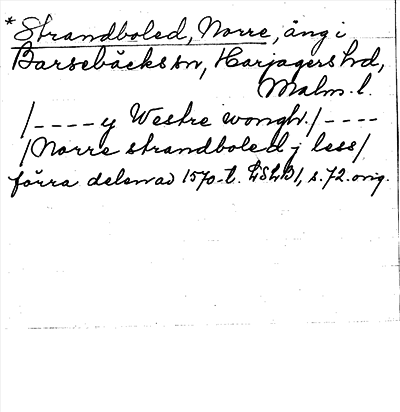 *Strandboled, Norre, äng i
Barsebäcks sn, Harjagers hd,
Malm. l.
/---- y Westre wongh./----
/Norre strandboled j less/
förra delen av 1570-t. LSLB1, s. 72. orig.